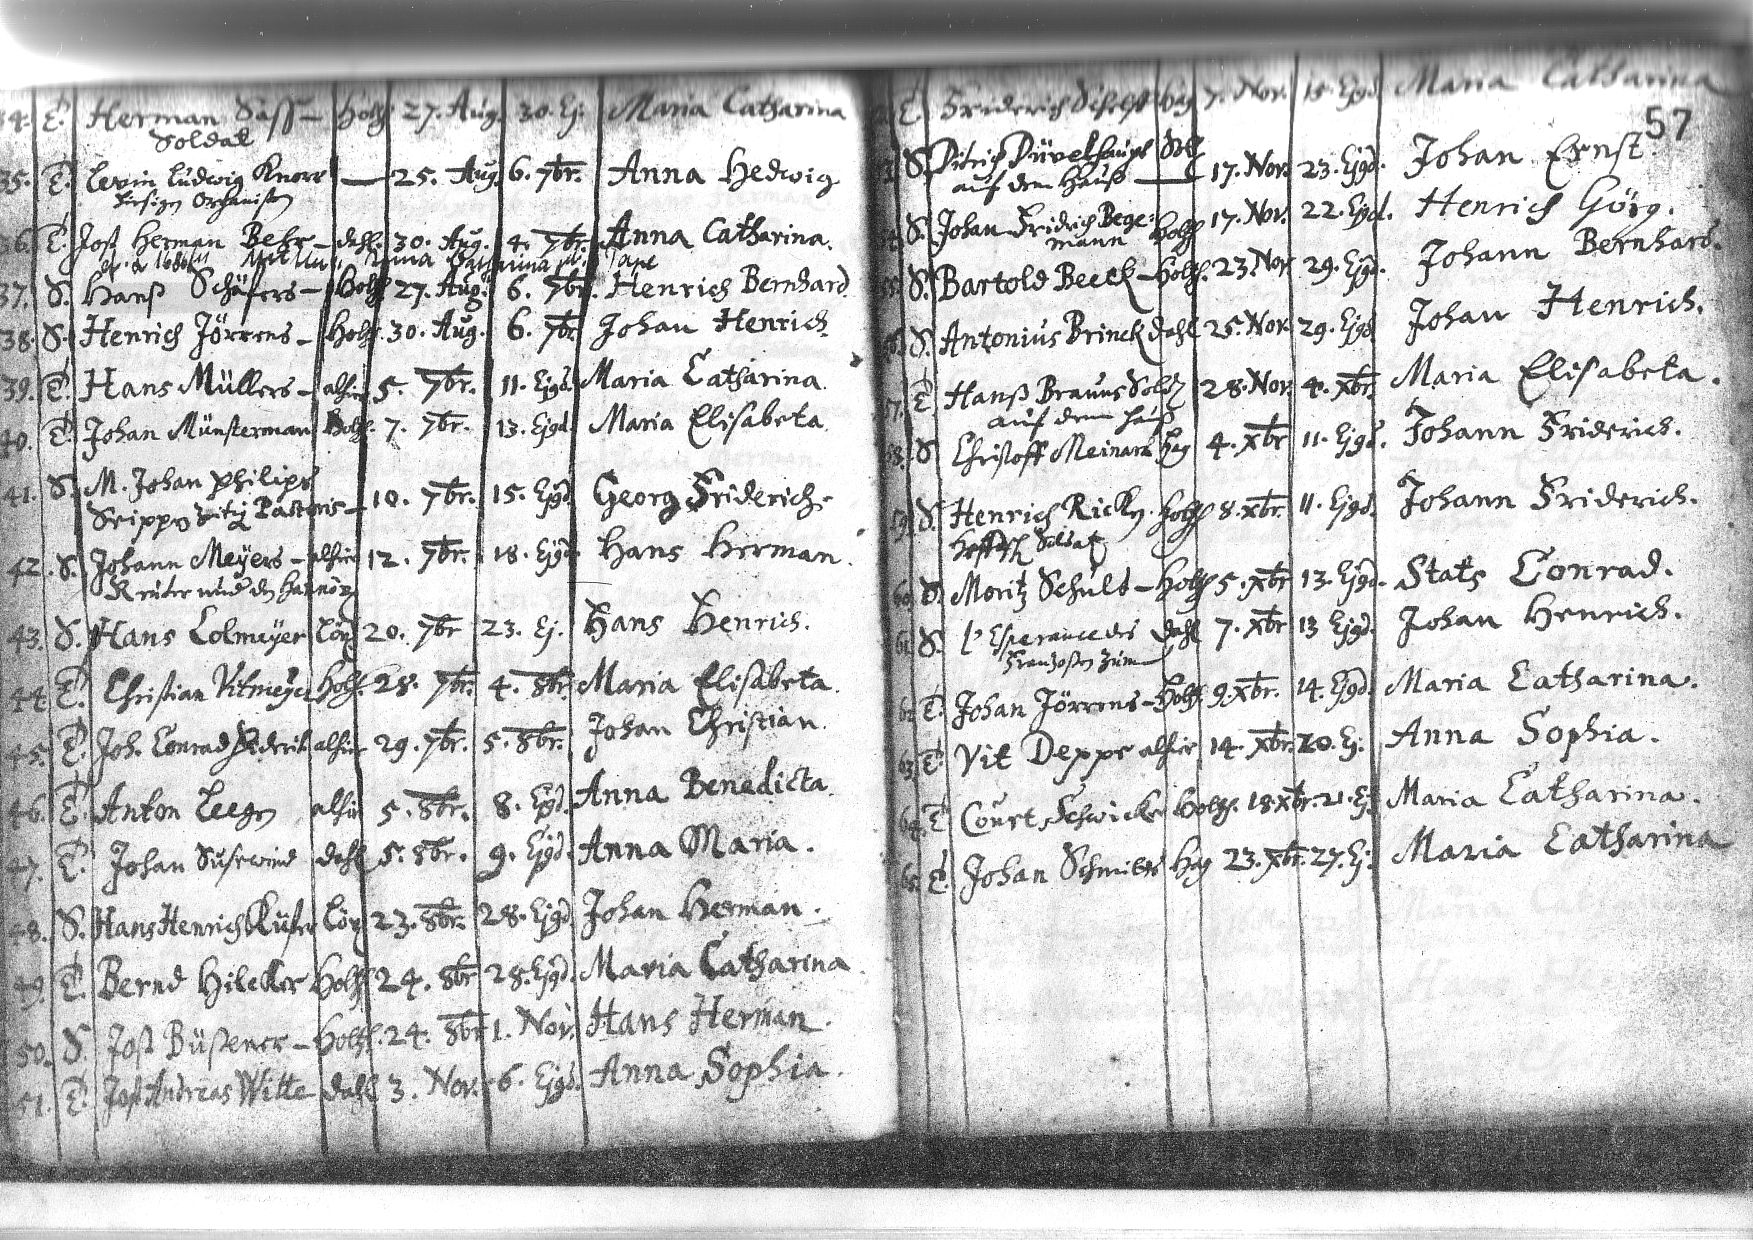 34. T. Herman Sass – Holtz 27. Aug. 30. Ej. Maria Catharina
Soldat
35. T. Levin Ludwig Knorr — 25. Aug. 6. 7br. Anna Hedwig
hiesigen Organisten
36. T. Jost Herman Behr – dahl. 30. Aug. 4. 7br. Anna Catharina.
37. S. Hanß Schäfers – Holtz 27. Aug. 6. 7br. Henrich Bernhard
38. S. Henrich Jörrens – Holtz. 30. Aug. 6. 7br. Johan Henrich
39. T. Hans Müllers – alhier 5. 7br. 11. Ejgd. Maria Catharina.
40. T. Johan Münsterman Holtz. 7. 7br. 13. Ejgd. Maria Elisabeta.
41. S. M. Johan Philips
Seippen Pastoris – 10. 7br. 15. Ejgd. Georg Friderich
42. S. Johann Meyers – alhier 12. 7br. 18. Ejgd. Hans Herman.
Reuter
43. S. Hans Colmeyer 20. 7br 23. Ej. Hans Henrich.
44. T. Christian Vitmeyer Holtz. 28. 7br. 4. 8br. Maria Elisabeta.
45. T. Joh. Conrad alhier 29. 7br. 5. 8br. Johan Christian.
46. T. Anton alhier 5. 8br. 8. Ejgd. Anna Benedicta.
47. T. Johan Susewind dahl 5. 8br. 9. Ejgd. Anna Maria.
48. S. Hans Henrich Küster 23. 8br. 28. Ejgd. Johan Herman.
49. T. Bernd Hileker Holtz 24. 8br 28. Ejgd. Maria Catharina
50. S. Jost Büßener – Holtz. 24. 8br 1. Nov. Hans Herman.
51. T. Jost Andreas Witte dahl 3. Nov. 6. Ejgd. Anna Sophia.
T. Friderich Hey 7. Nov. 15. Ejgd Maria Catharina
57
S. Ditrich Düvelhaupt Sold
auf dem Hauß — 17. Nov. 23. Ejgd. Johan Ernst.
S. Johan Fridrich Bege-
mann Holtz 17. Nov. 22. Ejgd. Henrich Görg.
S. Bartold Beeck – Holtz. 23 Nov 29. Ejgd. Johann Bernhard.
S. Antonius Brinck dahl 25. Nov. 29. Ejgd Johan Henrich.
57. T. Hanß Brauns Sold 28. Nov. 4. xbr. Maria Elisabeta.
auf dem Hauß
58. S Christoff Meinart Hey 4. xbr 11. Ejgd. Johann Friderich.
59. S. Henrich Holtz 8. xbr. 11. Ejgd. Johann Friderich.
Soldat
60. S. Moritz Schuld – Holtz 5. xbr 13. Ejgd. Stats Conrad.
61. S. l'Esperance des dahl 7. xbr 13 Ejgd. Johan Henrich.
Franzosen
62. T. Johan Jörrens – Holtz. 9. xbr. 14. Ejgd. Maria Catharina.
63. T. Vit Deppe alhier 14. xbr. 20. Ej. Anna Sophia.
64. T Court Holtz. 18 xbr. 21. Ej. Maria Catharina.
65. T. Johan Schmitts Hey 23. xbr. 27. Ej. Maria Catharina